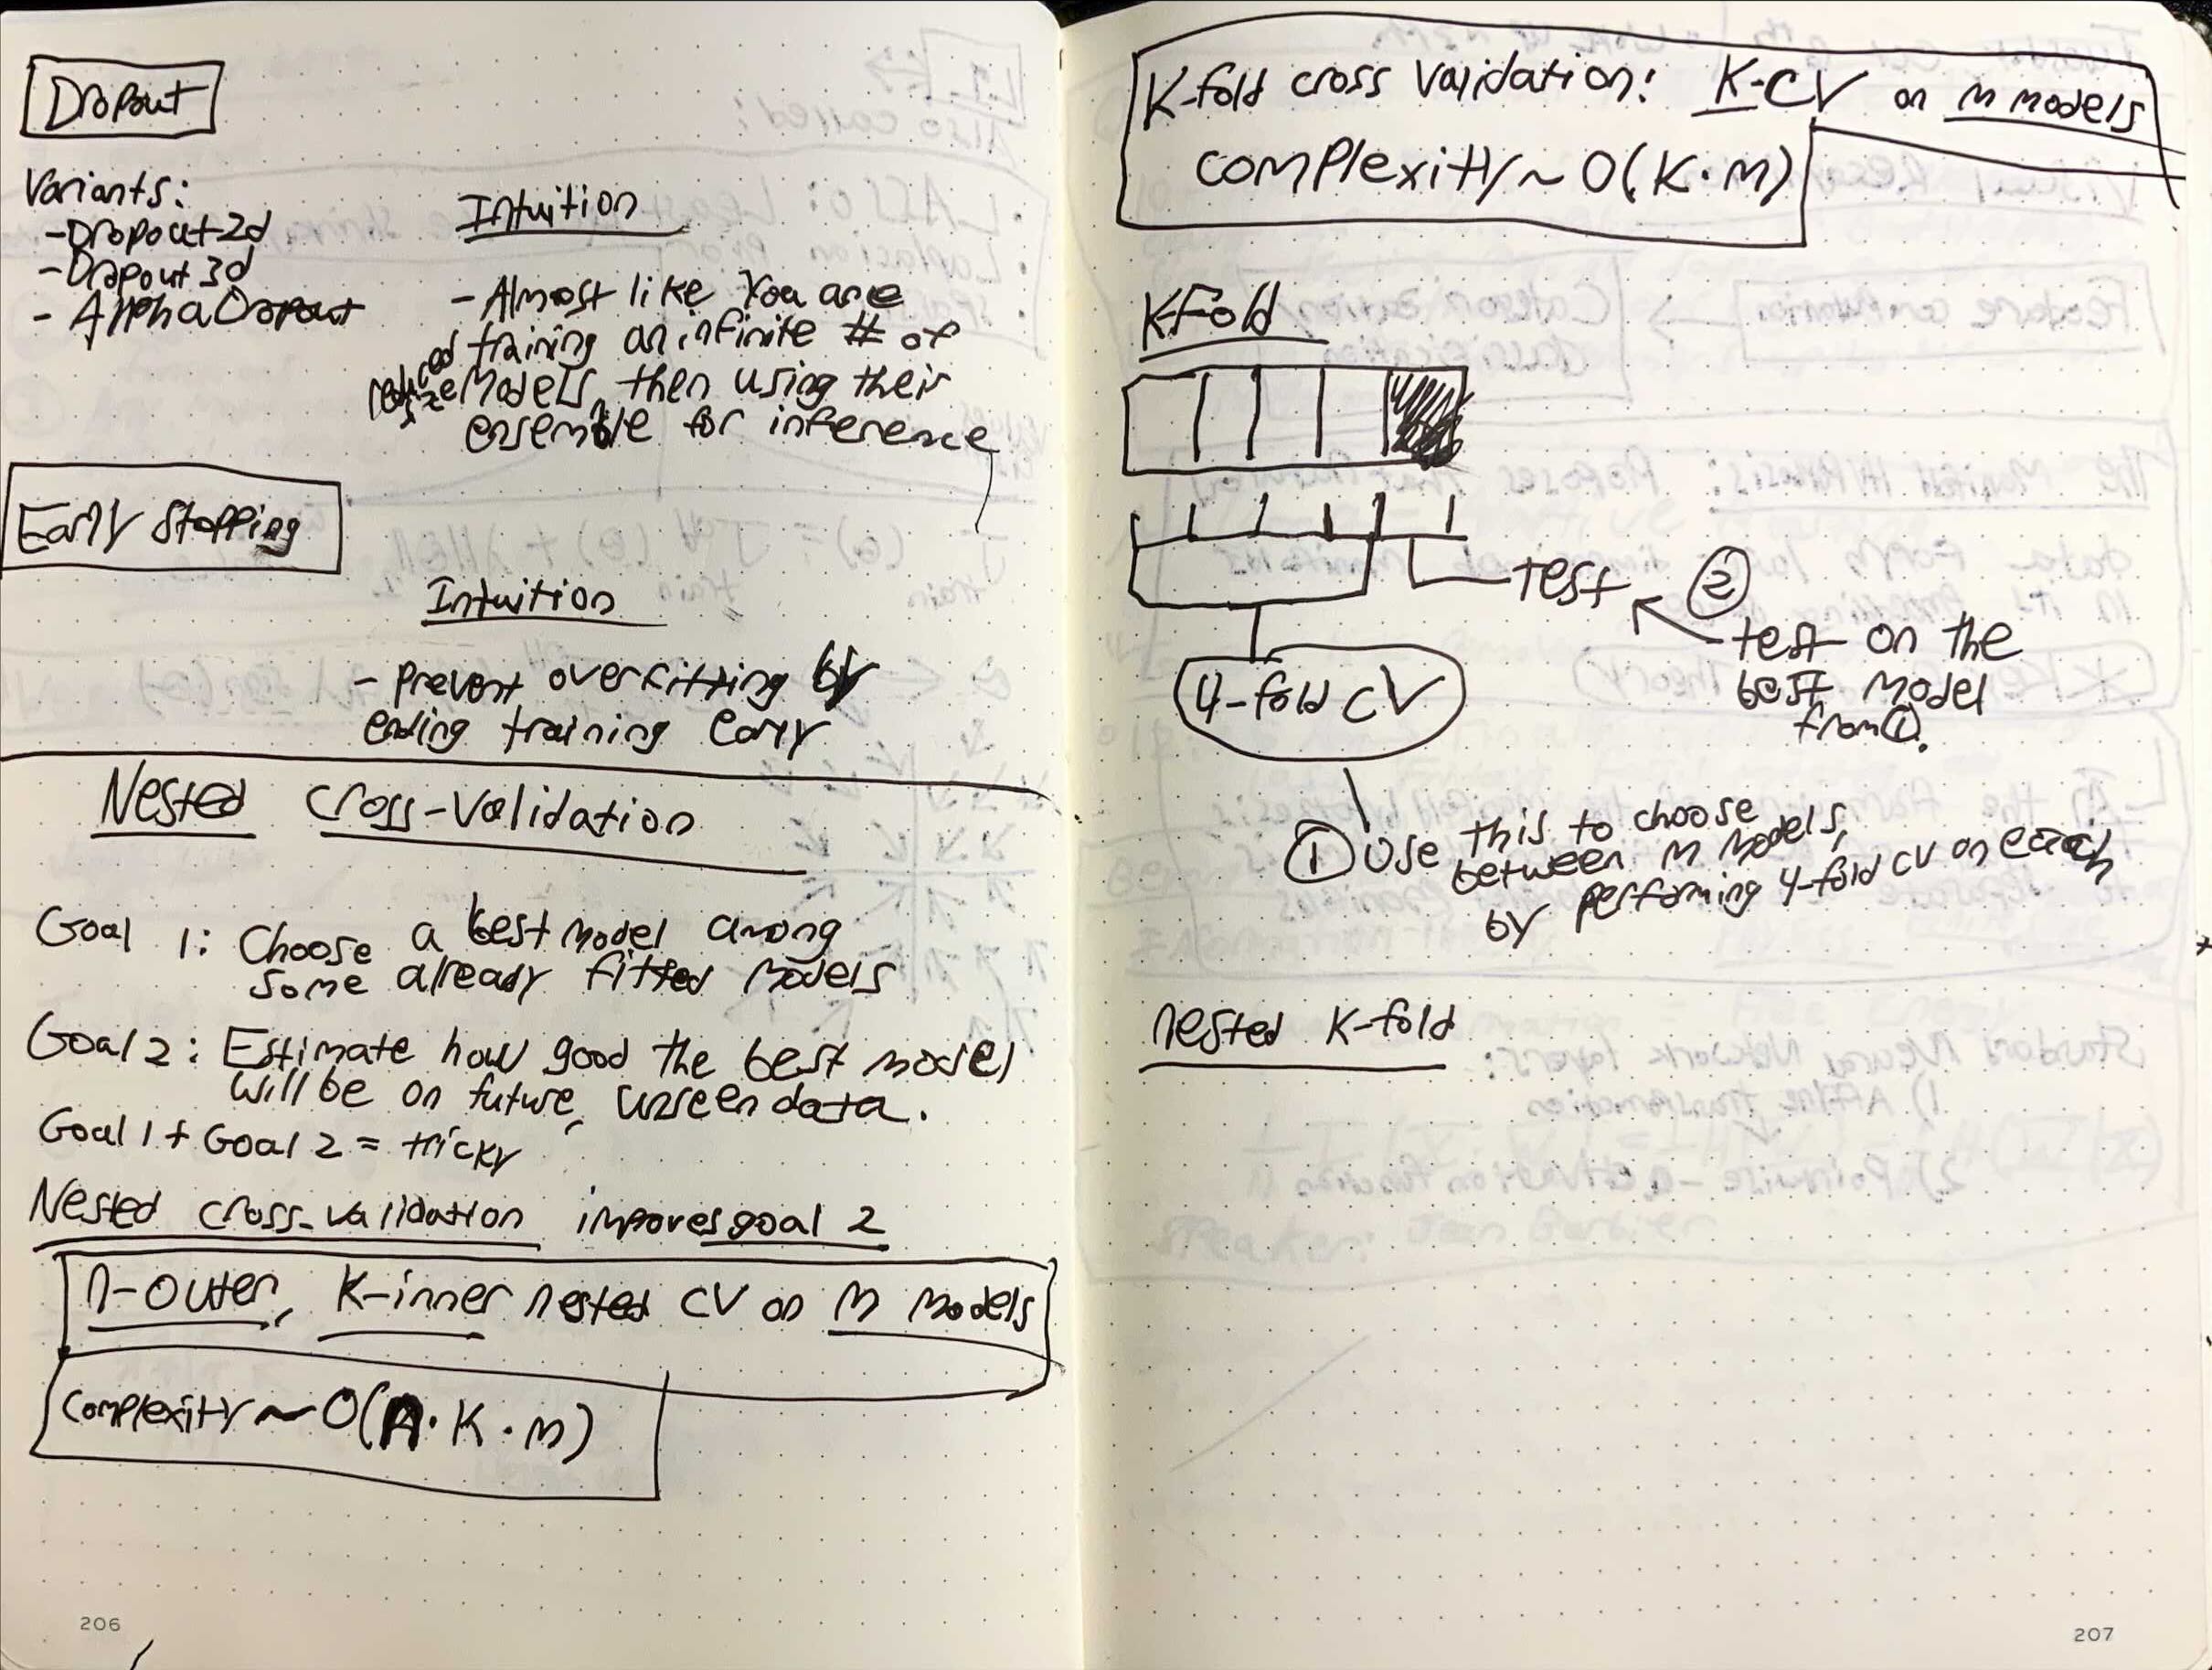 Dropout
Variants:
-Dropout2d
-Dropout3d
- AlphaDropout
Intuition
-Almost like you are
training an infinite # of
reduced size models, then using their
ensemble for inference
Early Stopping
Intuition
- Prevent overfitting by
ending training early
Nested Cross-Validation
Goal 1: Choose a best model among
some already fitted models
Goal 2: Estimate how good the best model
will be on future, unseen data.
Goal 1 + Goal 2 = tricky
Nested cross-validation improves goal 2
n-outer, K-inner nested CV on M models
Complexity ~ O(n·K·M)
206
K-fold cross validation: K-CV on M models
complexity ~ O(K·M)
KFold
test
②
-test on the
best model
from ①.
4-fold CV
① Use this to choose
between M models,
by performing 4-fold CV on each
nested K-fold
207